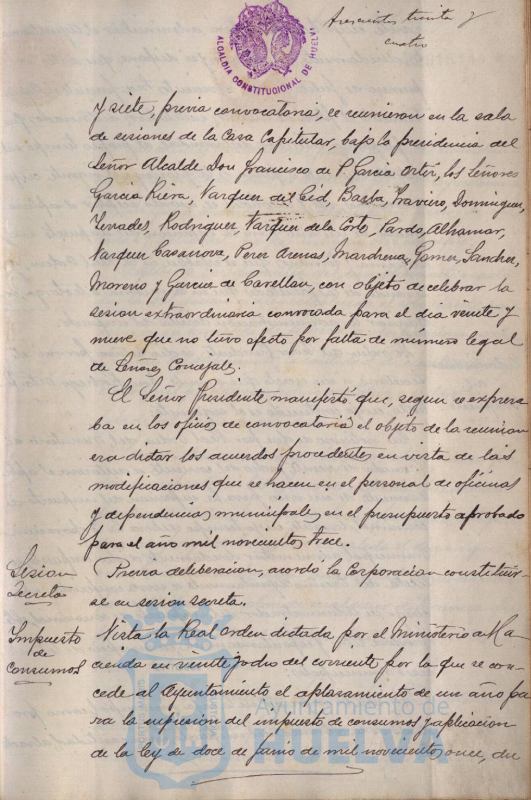 ALCALDIA CONSTITUCIONAL DE HUELVA
trescientos treinta y
cuatro
y siete, previa convocatoria, se reunieron en la sala
de sesiones de la Casa Capitular, bajo la presidencia del
Señor Alcalde Don Francisco de P. Garcia Ortiz, los Señores
Garcia Riera, Vazquez del Cid, Barba, Traviero, Dominguez,
Tenades, Rodriguez, Vazquez de la Corte, Pardo, Alhamar,
Vazquez Casanova, Perez Arenas, Mardrena, Gomez, Sanchez,
Moreno y Garcia de Carellan, con objeto de celebrar la
sesion extraordinaria convocada para el dia veinte y
nueve que no tuvo efecto por falta de número legal
de Señores Concejales.
El Señor Presidente manifestó que, segun se expresa
ba en los oficios de convocatoria el objeto de la reunion
era dictar los acuerdos procedentes en vista de las
modificaciones que se hacen en el personal de oficinas
y dependencias municipales en el presupuesto aprobado
para el año mil novecientos trece.
Sesion
Secreta
Previa deliberacion, acordó la Corporacion constituir-
se en sesion secreta.
Impuesto
de
Consumos
Vista la Real Orden dictada por el Ministerio de Ha
cienda en veinte y ocho del corriente por la que se con-
cede al Ayuntamiento el aplazamiento de un año pa
ra la supresion del impuesto de consumos y aplicacion
de la ley de doce de junio de mil novecientos once, du
Ayuntamiento de
HUELVA